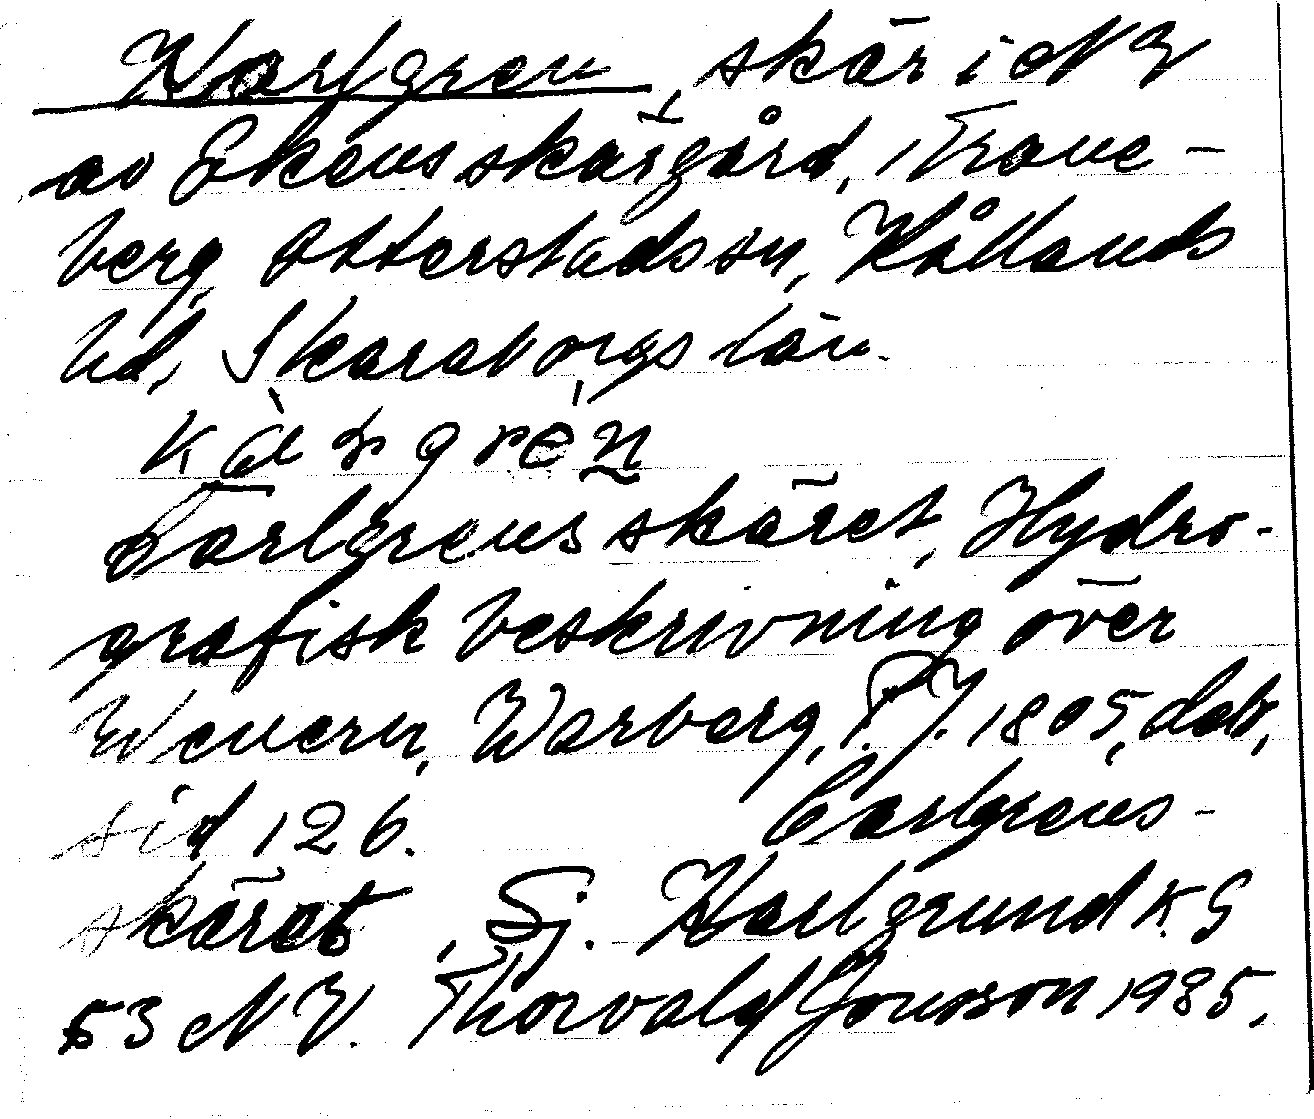 Karlgren, skär i NV
av Ekens skärgård, Trane-
berg, Otterstads sn, Kållands
hd, Skaraborgs län.
Carlgrens skäret, Hydro-
grafisk beskrivning över
Wenern, Warberg, P.J. 1805, dat,
sid 126. Carlgrens-
skäret, Sj. Karlgrund K.G
53 NV. Thorvald Jonsson 1985.